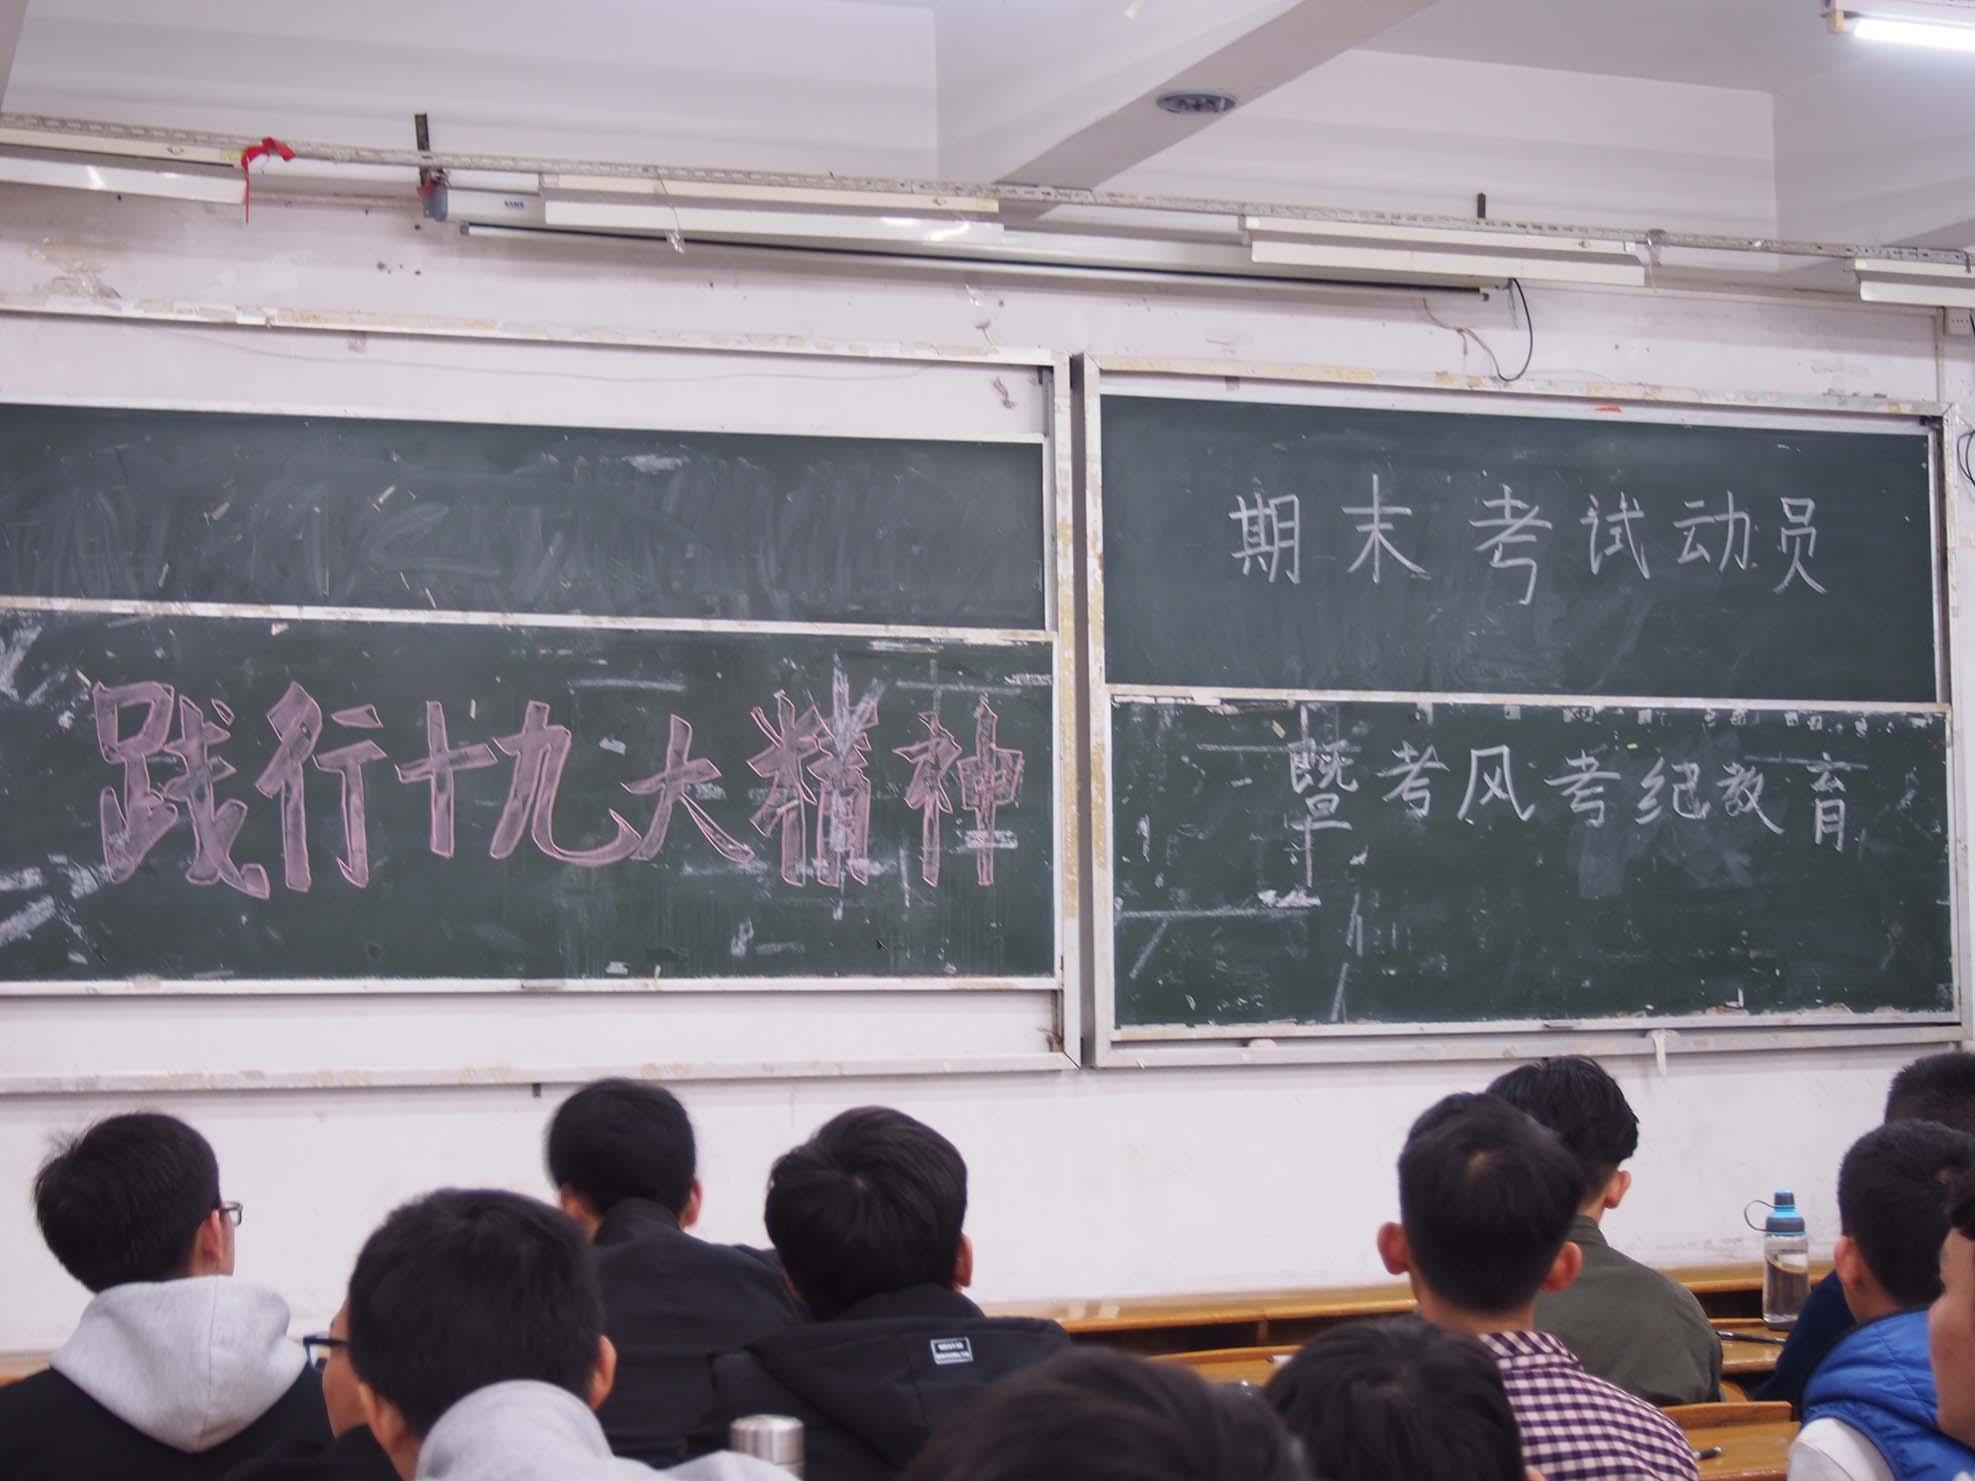 践行十九大精神
期末考试动员
暨考风考纪教育